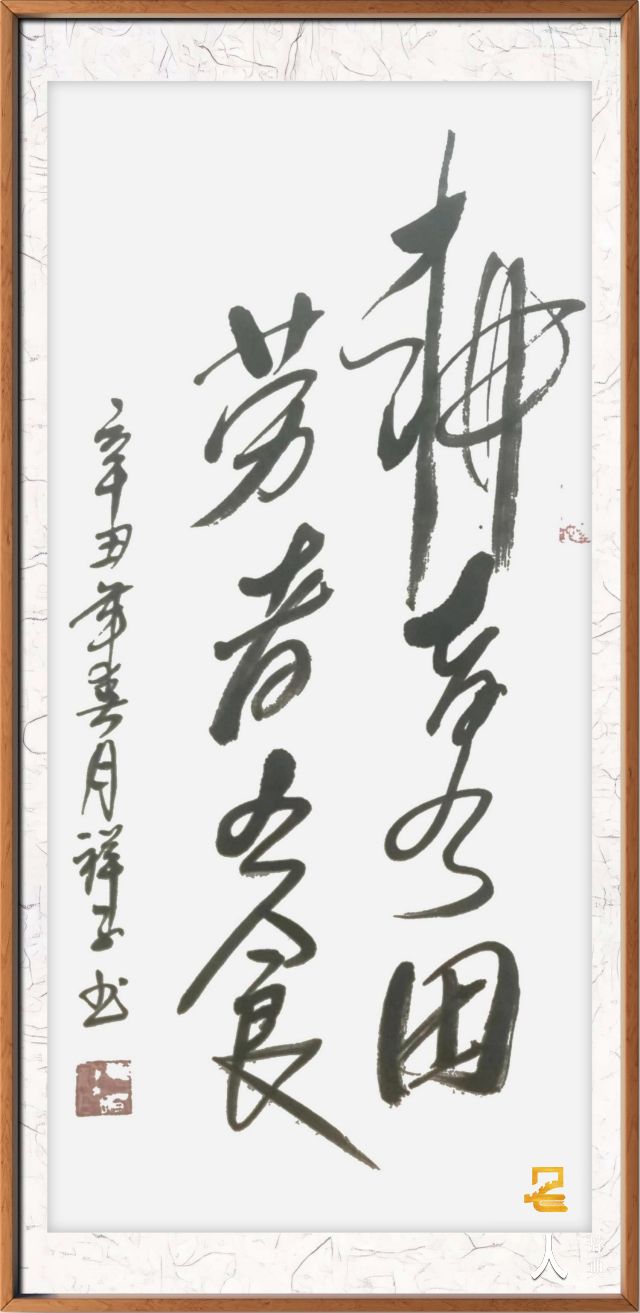 耕者有田
劳者有食
辛丑年春月祥书
人